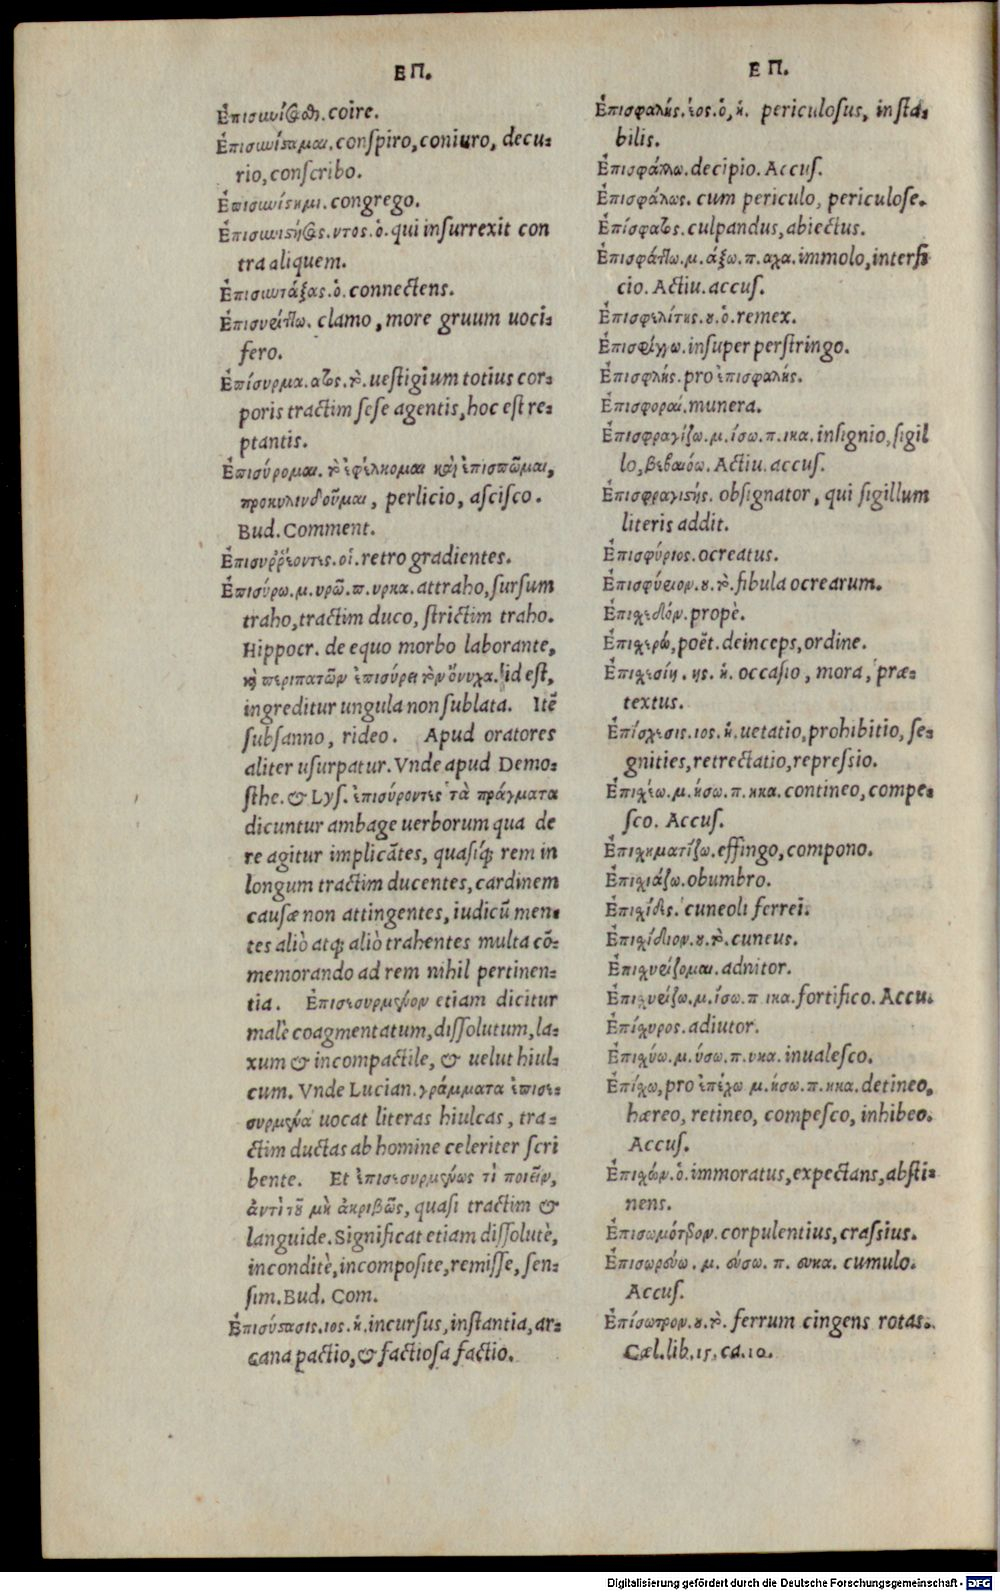 ΕΠ.
Ἐπισυνίεσθαι. coire.
Ἐπισυνίσταμαι. conſpiro, coniuro, decu-
rio, conſcribo.
Ἐπισυνίστημι. congrego.
Ἐπισυνιστὰς. ντος. ὁ. qui inſurrexit con
tra aliquem.
Ἐπισυντάξας. ὁ. connectens.
Ἐπισυρίττω. clamo, more gruum uoci-
fero.
Ἐπίσυρμα. ατος. τὸ. ueſtigium totius cor-
poris tractim ſeſe agentis, hoc eſt re-
ptantis.
Ἐπισύρομαι. τὸ ἐφέλκομαι καὶ ἐπισπῶμαι,
προκυλινδοῦμαι, perlicio, aſciſco.
Bud. Comment.
Ἐπισυῤῥέοντες. οἱ. retro gradientes.
Ἐπισύρω. μ. υρῶ. π. υρκα. attraho, ſurſum
traho, tractim duco, ſtrictim traho.
Hippocr. de equo morbo laborante,
καὶ περιπατῶν ἐπισύρει τὸν ὄνυχα. id eſt,
ingreditur ungula non ſublata. Itē
ſubſanno, rideo. Apud oratores
aliter uſurpatur. Vnde apud Demo-
ſthe. & Lyſ. ἐπισύροντες τὰ πράγματα
dicuntur ambage uerborum qua de
re agitur implicātes, quaſiq́; rem in
longum tractim ducentes, cardinem
cauſæ non attingentes, iudicū men-
tes aliò atq; aliò trahentes multa cō-
memorando ad rem nihil pertinen-
tia. Ἐπισεσυρμένον etiam dicitur
malè coagmentatum, diſſolutum, la-
xum & incompactile, & uelut hiul-
cum. Vnde Lucian. γράμματα ἐπισε-
συρμένα uocat literas hiulcas, tra-
ctim ductas ab homine celeriter ſcri
bente. Et ἐπισεσυρμένως τὶ ποιεῖν,
ἀντὶ τοῦ μὴ ἀκριβῶς, quaſi tractim &
languide. Significat etiam diſſolutè,
inconditè, incompoſite, remiſſe, ſen-
ſim. Bud. Com.
Ἐπισύστασις. ιος. ἡ. incurſus, inſtantia, ar-
cana pactio, & factioſa factio.
ΕΠ.
Ἐπισφαλὴς. έος. ὁ, ἡ. periculoſus, inſta-
bilis.
Ἐπισφάλλω. decipio. Accuſ.
Ἐπισφάλως. cum periculo, periculoſe.
Ἐπίσφατος. culpandus, abiectus.
Ἐπισφάττω. μ. άξω. π. αχα. immolo, interfi
cio. Actiu. accuſ.
Ἐπισφελίτης. ου. ὁ. remex.
Ἐπισφίγγω. inſuper perſtringo.
Ἐπισφλὴς. pro ἐπισφαλὴς.
Ἐπισφοραί. munera.
Ἐπισφραγίζω. μ. ίσω. π. ικα. inſignio, ſigil
lo, βεβαιόω. Actiu. accuſ.
Ἐπισφραγιστὴς. obſignator, qui ſigillum
literis addit.
Ἐπισφύριος. ocreatus.
Ἐπισφύριον. ου. τὸ. fibula ocrearum.
Ἐπισχεδόν. propè.
Ἐπισχερώ, poët. deinceps, ordine.
Ἐπισχεσίη. ης. ἡ. occaſio, mora, præ-
textus.
Ἐπίσχεσις. ιος. ἡ. uetatio, prohibitio, ſe-
gnities, retrectatio, repreſsio.
Ἐπισχέω. μ. ήσω. π. ηκα. contineo, compe-
ſco. Accuſ.
Ἐπισχηματίζω. effingo, compono.
Ἐπισκιάζω. obumbro.
Ἐπισχίδες. cuneoli ferrei.
Ἐπισχίδιον. ου. τὸ. cuneus.
Ἐπισχυρίζομαι. adnitor.
Ἐπισχυρίζω. μ. ίσω. π ικα. fortifico. Accu.
Ἐπίσχυρος. adiutor.
Ἐπισχύω. μ. ύσω. π. υκα. inualeſco.
Ἐπίσχω, pro ἐπέχω μ. ήσω. π. ηκα. detineo,
hæreo, retineo, compeſco, inhibeo.
Accuſ.
Ἐπισχών. ὁ. immoratus, expectans, abſti-
nens.
Ἐπισωμότερον. corpulentius, craſsius.
Ἐπισωρεύω. μ. εύσω. π. ευκα. cumulo.
Accuſ.
Ἐπίσωτρον. ου. τὸ. ferrum cingens rotas.
Cæl. lib. 15. ca. 10.
Digitalisierung gefördert durch die Deutsche Forschungsgemeinschaft - DFG